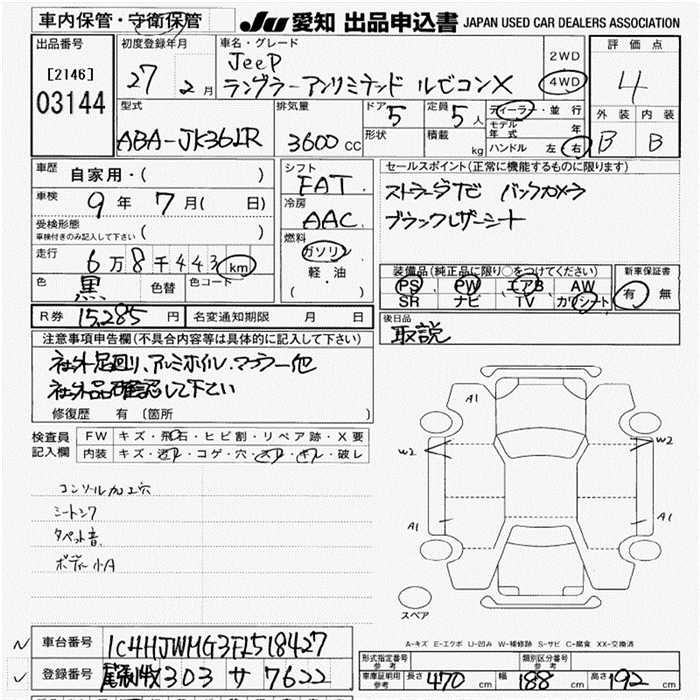 車内保管・守衛保管 JU 愛知 出品申込書 JAPAN USED CAR DEALERS ASSOCIATION
出品番号 [2146] 03144
初度登録年月 27 2月
車名・グレード Jeep
ラングラーアンリミテッド ルビコンX
2WD 4WD
評価点 4
外装 B 内装 B
型式 ABA-JK36LR
排気量 3600 cc
ドア 5 形状
定員 5人 積載 kg
ディーラー・並行
モデル年式 年
ハンドル 左 右
車歴 自家用・( )
車検 9年 7月( 日)
受検形態 ( )
車検付きのみ記入して下さい
走行 6万8千443 km
色 黒 色替 色コード
シフト FAT
冷房 AAC
燃料 ガソリン
軽・油
( )
セールスポイント(正常に機能するものに限ります)
ストラーダナビ バックカメラ
ブラックレザーシート
装備品(純正品に限り○をつけてください)
PS PW エアB AW
SR ナビ TV カワシート
新車保証書 有 無
R券 15,285円 名変通知期限 月 日
後日品 取説
注意事項申告欄(不具合内容等は具体的に記入して下さい)
社外足回り、アルミホイル、マフラー他
社外品確認して下さい
修復歴 有 (箇所 )
検査員記入欄
FW キズ・飛石・ヒビ割・リペア跡・X要
内装 キズ・汚レ・コゲ・穴・スレ・キレ・破レ
コンソール加工穴
シートシワ
タペット音
ボディ小A
A1
W2 W2
A1 A1
スペア
A-キズ E-エクボ U-凹み W-補修跡 S-サビ C-腐食 XX-交換済
車台番号 1C4HJWMG3FL518427
登録番号 尾張小牧 303 サ 7622
形式指定番号 参考 類別区分番号 参考
車庫証明用 参考 長さ 470 cm 幅 188 cm 高さ 192 cm